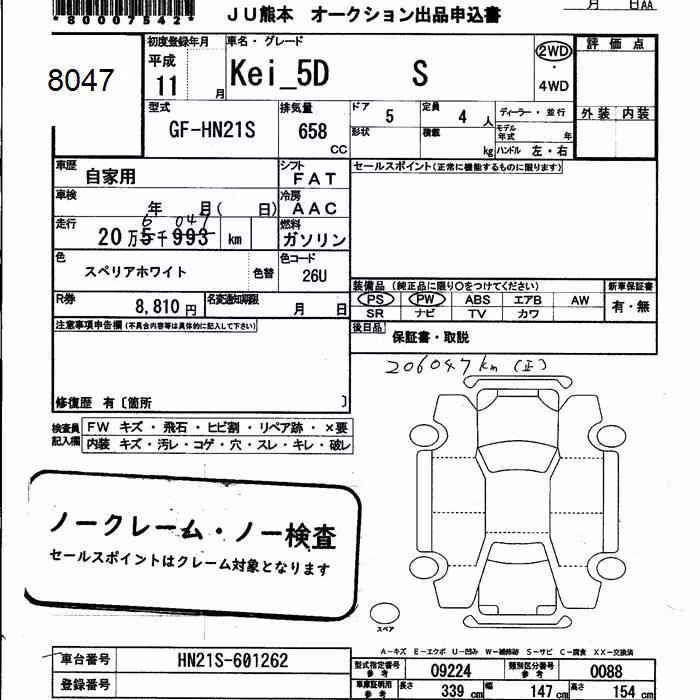 *80007542*
JU熊本 オークション出品申込書
月 日AA
8047
初度登録年月
平成
11 月
車名・グレード
Kei_5D S
2WD
・
4WD
評価点
外装 内装
型式
GF-HN21S
排気量
658 CC
ドア 5
定員 4 人
ディーラー・並行
形状
積載 kg
モデル年式 年
ハンドル 左・右
車歴
自家用
シフト
FAT
セールスポイント(正常に機能するものに限ります)
車検
年 月( 日)
冷房
AAC
走行
6 047
20万5千993 km
燃料
ガソリン
色
スペリアホワイト
色替
色コード
26U
装備品 (純正品に限り○をつけてください)
新車保証書
PS PW ABS エアB AW
SR ナビ TV カワ
有・無
R券
8,810円
名変通知期限
月 日
後日品
保証書・取説
注意事項申告欄(不具合内容等は具体的に記入して下さい)
206047km (正)
修復歴 有〔箇所 〕
検査員
記入欄
FW キズ・飛石・ヒビ割・リペア跡・×要
内装 キズ・汚レ・コゲ・穴・スレ・キレ・破レ
ノークレーム・ノー検査
セールスポイントはクレーム対象となります
スペア
A−キズ E−エクボ U−凹み W−補修跡 S−サビ C−腐食 XX−交換済
車台番号
HN21S-601262
登録番号
型式指定番号
参考
09224
類別区分番号
参考
0088
車庫証明用
参考
長さ 339 cm
幅 147 cm
高さ 154 cm